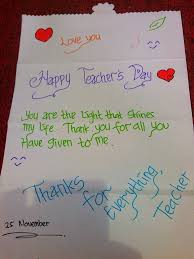 Love you
Happy Teacher's Day
You are the light that shines
my life. Thank you for all you
Have given to me
Thanks
for
Everything,
Teacher
25 November